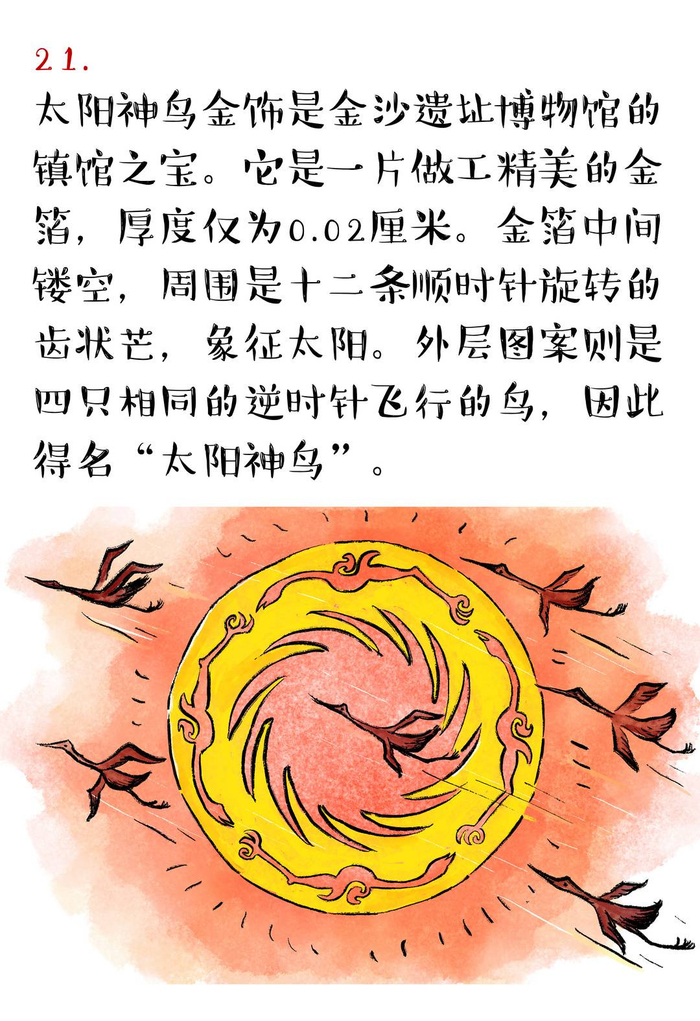 21.
太阳神鸟金饰是金沙遗址博物馆的
镇馆之宝。它是一片做工精美的金
箔，厚度仅为0.02厘米。金箔中间
镂空，周围是十二条顺时针旋转的
齿状芒，象征太阳。外层图案则是
四只相同的逆时针飞行的鸟，因此
得名“太阳神鸟”。